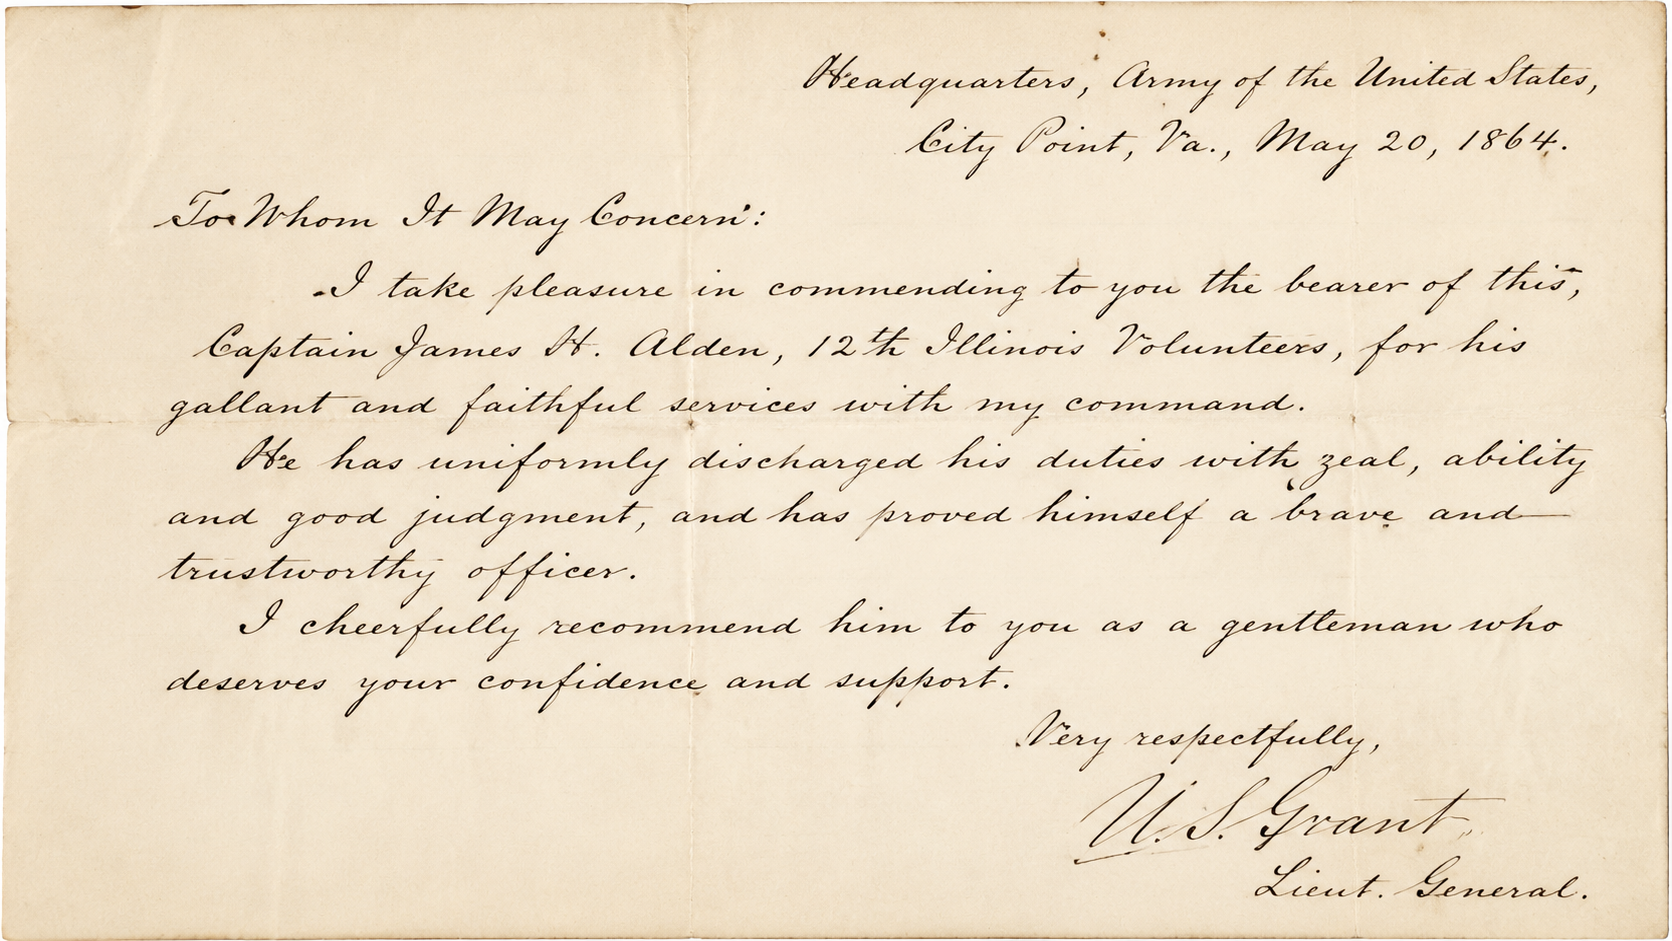 Headquarters, Army of the United States,
City Point, Va., May 20, 1864.
To Whom It May Concern:
I take pleasure in commending to you the bearer of this,
Captain James H. Alden, 12th Illinois Volunteers, for his
gallant and faithful services with my command.
He has uniformly discharged his duties with zeal, ability
and good judgment, and has proved himself a brave and
trustworthy officer.
I cheerfully recommend him to you as a gentleman who
deserves your confidence and support.
Very respectfully,
U. S. Grant
Lieut. General.